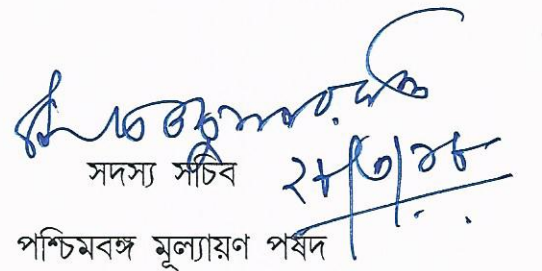 সদস্য সচিব
২৮/৩/১৮
পশ্চিমবঙ্গ মূল্যায়ণ পর্ষদ